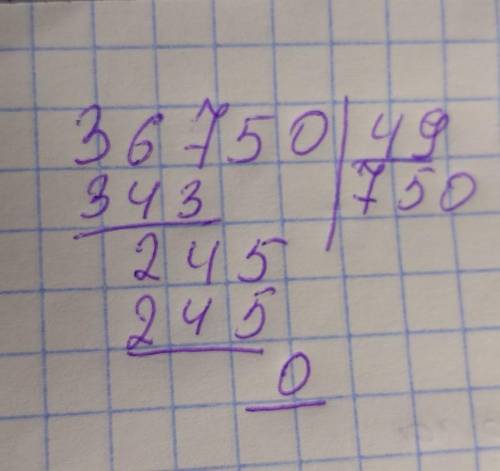 36750 49
343 750
245
245
0